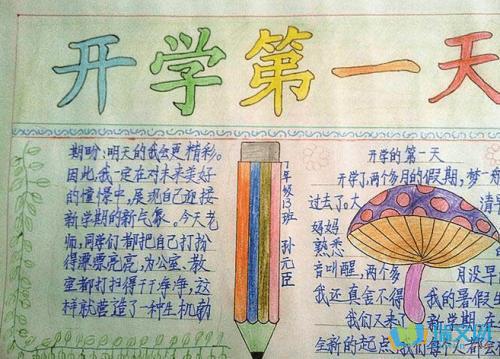 开学第一天
期盼,明天的我会更精彩。
因此,我一定在对未来美好
的憧憬中,展现自己迎接
新学期的新气象。今天老
师,同学们都把自己打扮
得漂漂亮亮,为公室、教
室都打扫得干干净净,这
样就营造了一种生机勃
7年级13班 孙元臣
开学的第一天
开学了,两个多月的假期,梦一般
过去了。大 清早
妈妈
熟悉
音叫醒,两个多 月没早
我还真舍不得 我的暑假生
我们又来了 新学期,在
全新的起点,我们每个人都会